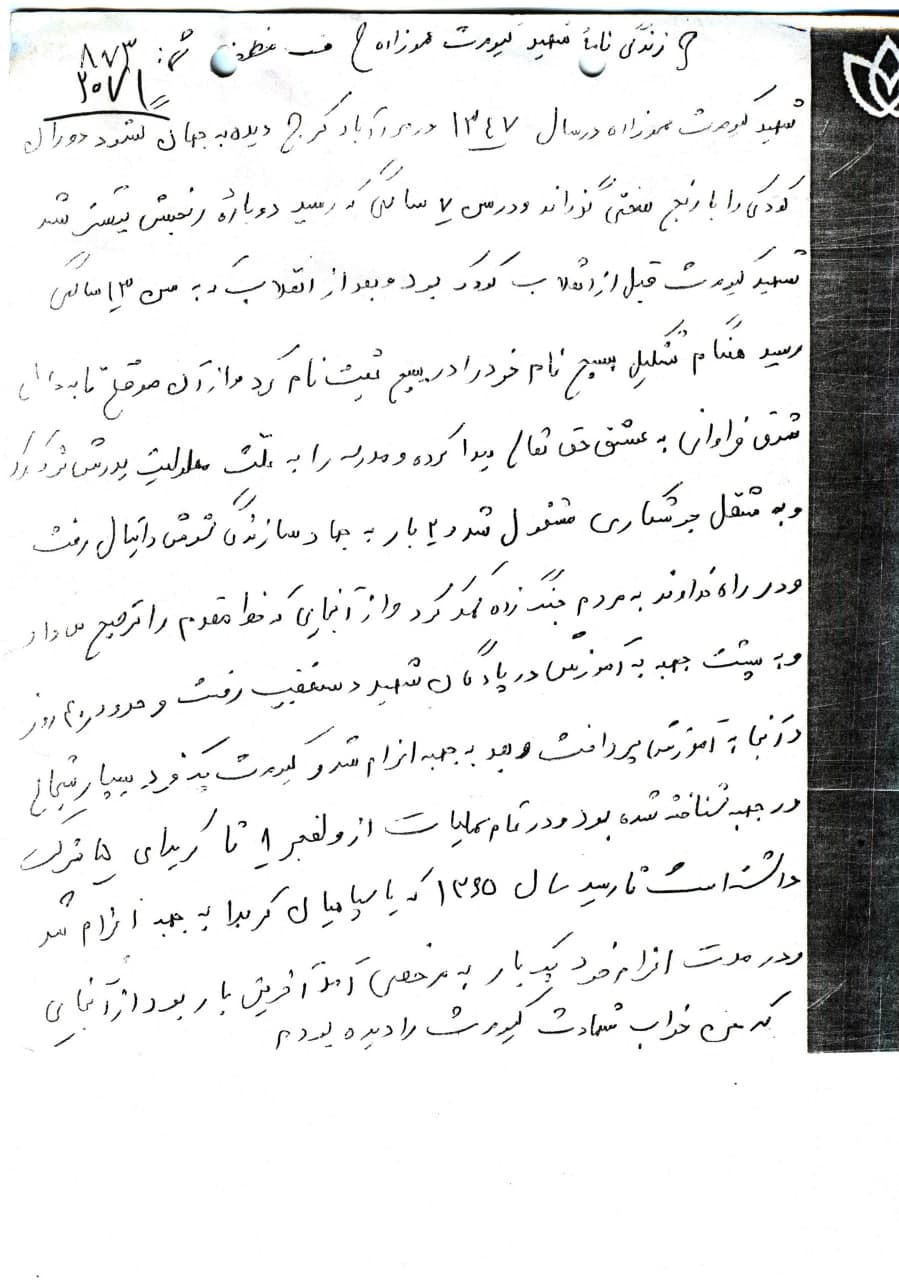 زندگی نامهٔ شهید کیومرث
۸۷۳
۲۰۷۱
شهید کیومرث در سال ۱۳۴۷ در کرج دیده به جهان گشود دوران
کودکی را با رنج سختی گذراند و در سن ۷ سالگی که رسید دوبارهٔ رنجش بیشتر شد
شهید کیومرث قبل از انقلاب کودک بود و بعد از انقلاب که به سن ۱۳ سالگی
رسید هنگام تشکیل بسیج نام خود را در بسیج ثبت نام کرد و از آن موقع تا به حال
شوق فراوانی به عشق حق تعالی پیدا کرده و مدرسه را به علت معلولیت پدرش ترک کرد
و به شغل جوشکاری مشغول شد و ۲ بار به جهاد سازندگی شوش دانیال رفت
و در راه خداوند به مردم جنگ زده کمک کرد و از آنجایی که خط مقدم را ترجیح می داد
و به پشت جبهه به آموزش در پادگان شهید دستغیب رفت و حدود روز
در آنجا به آموزش پرداخت و بعد به جبهه اعزام شد و کیومرث یک فرد بسیار
در جبهه شناخته شده بود و در تمام عملیات از ولفجر ۸ تا کربلای ۵ شرکت
داشته است تا رسید سال ۱۳۶۵ که با سپاهیان کربلا به جبهه اعزام شد
و در مدت اعزام خود یک بار به مرخصی آمد آخرین بار بود از آنجایی
که من خواب شهادت کیومرث را دیده بودم